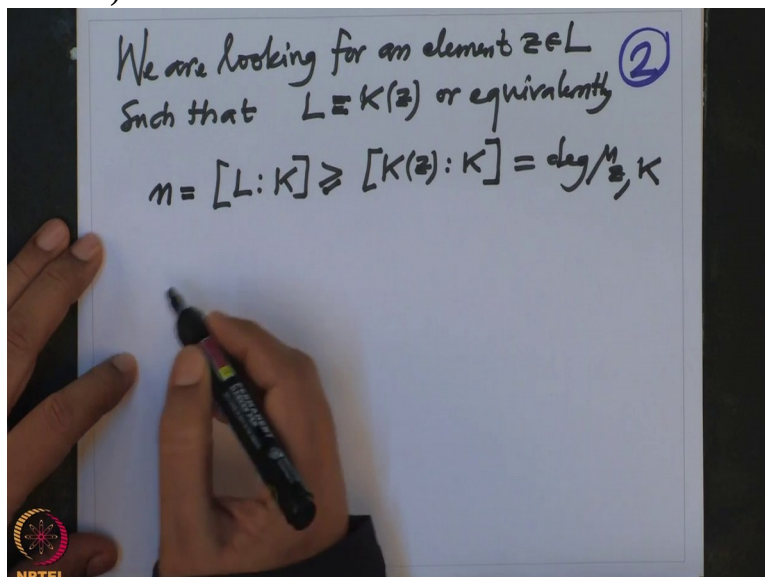 We are looking for an element z ∈ L
Such that L = K(z) or equivalently
②
n = [L : K] ≥ [K(z) : K] = deg μ_{z, K}
PERMANENT
NPTEL